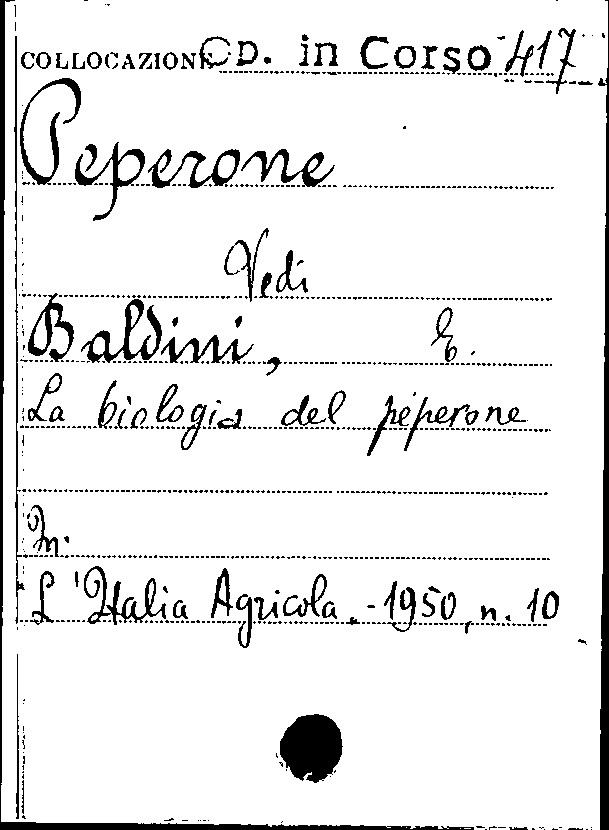 COLLOCAZIONE OD. in Corso 417
Peperone
Vedi
Baldini, E.
La biologia del peperone
In.
L'Italia Agricola.-1950, n. 10